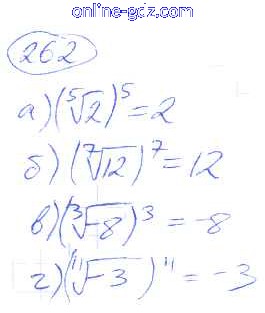 online-gdz.com
262
а) (⁵√2)⁵ = 2
б) (⁷√12)⁷ = 12
в) (³√-8)³ = -8
г) (¹¹√-3)¹¹ = -3